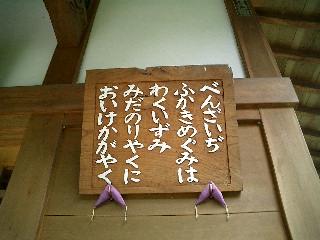 べんざいぢ
ふかきめぐみは
わくいずみ
みだのりやくに
おいけかがやく